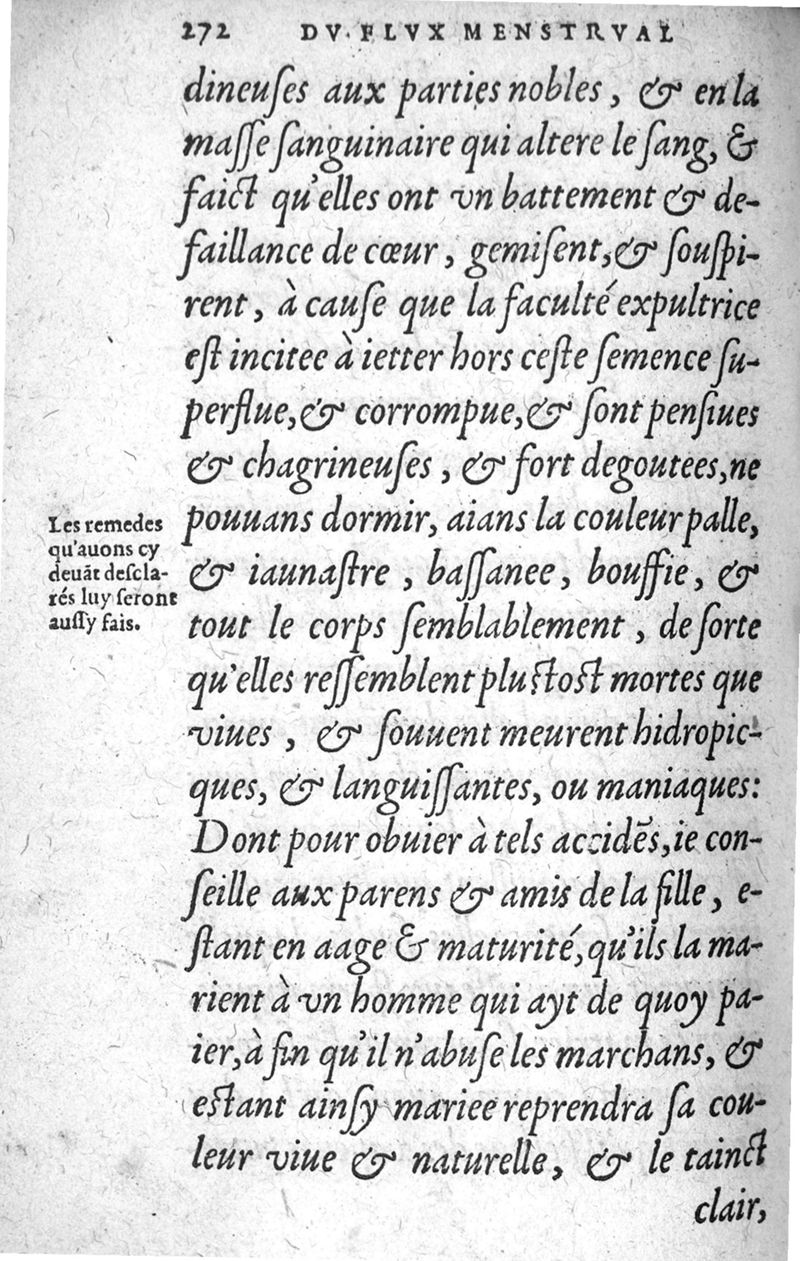 272 DV FLVX MENSTRVAL
dineuſes aux parties nobles, & en la
maſſe ſanguinaire qui altere le ſang, &
faict qu'elles ont vn battement & de-
faillance de cœur, gemiſent, & ſouſpi-
rent, à cauſe que la faculté expultrice
eſt incitee à ietter hors ceſte ſemence ſu-
perflue, & corrompue, & ſont penſiues
& chagrineuſes, & fort degoutees, ne
pouuans dormir, aians la couleur palle,
& iaunaſtre, baſſanee, bouffie, &
tout le corps ſemblablement, de ſorte
qu'elles reſſemblent pluſtoſt mortes que
viues, & ſouuent meurent hidropic-
ques, & languiſſantes, ou maniaques:
Dont pour obuier à tels accidēs, ie con-
ſeille aux parens & amis de la fille, e-
ſtant en aage & maturité, qu'ils la ma-
rient à vn homme qui ayt de quoy pa-
ier, à fin qu'il n'abuſe les marchans, &
eſtant ainſy mariee reprendra ſa cou-
leur viue & naturelle, & le tainct
clair,
Les remedes
qu'auons cy
deuāt deſcla-
rés luy ſeront
auſſy fais.